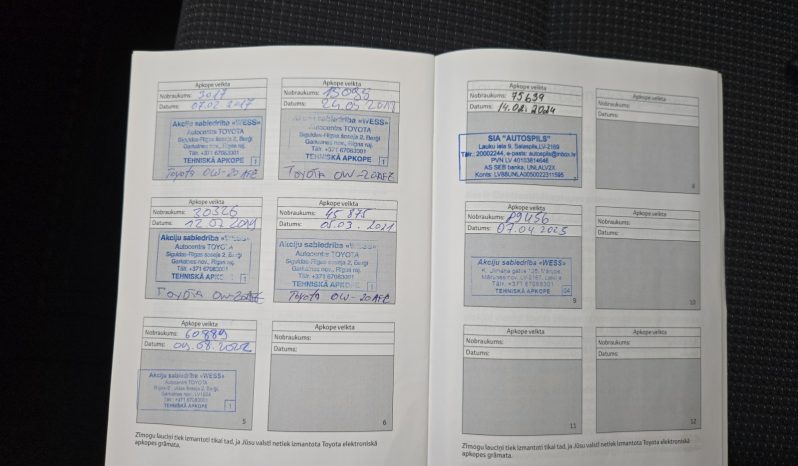 Apkope veikta
Nobraukums: 3017
Datums: 07.02 2017
Akciju sabiedrība «WESS»
Autocentrs TOYOTA
Siguldas-Rīgas šoseja 2, Berģi
Garkalnes nov., Rīgas raj.
Tālr. +371 67063001
TEHNISKĀ APKOPE 1
Toyota OW-20 AFE
Apkope veikta
Nobraukums: 15095
Datums: 24.05 2018
Akciju sabiedrība «WESS»
Autocentrs TOYOTA
Siguldas-Rīgas šoseja 2, Berģi
Garkalnes nov., Rīgas raj.
Tālr. +371 67063001
TEHNISKĀ APKOPE 1
Toyota OW-20AFE
Apkope veikta
Nobraukums: 30326
Datums: 12.07 2019
Akciju sabiedrība «WESS»
Autocentrs TOYOTA
Siguldas-Rīgas šoseja 2, Berģi
Garkalnes nov., Rīgas raj.
Tālr. +371 67063001
TEHNISKĀ APKOPE 1
Toyota OW-20AFE
Apkope veikta
Nobraukums: 45 875
Datums: 05.03. 2021
Akciju sabiedrība «WESS»
Autocentrs TOYOTA
Siguldas-Rīgas šoseja 2, Berģi
Garkalnes nov., Rīgas raj.
Tālr. +371 67063001
TEHNISKĀ APKOPE 1
Toyota OW-20AFE
Apkope veikta
Nobraukums: 60889
Datums: 09.08.2022
Akciju sabiedrība «WESS»
Autocentrs TOYOTA
šoseja 2, Berģi,
Garkalnes nov.,
Tālr. +371 67063001
TEHNISKĀ APKOPE 1
5
Apkope veikta
Nobraukums:
Datums:
6
Zīmogu lauciņi tiek izmantoti tikai tad, ja Jūsu valstī netiek izmantota Toyota elektroniskā
apkopes grāmata.
Apkope veikta
Nobraukums: 75639
Datums: 14.02.2024
SIA "AUTOSPILS"
Lauku iela 9, Salaspils, LV-2169
Tālr.: 20002244, e-pasts: autospils@inbox.lv
PVN LV 40103814646
AS SEB banka, UNLALV2X
Konts: LV88UNLA0050022311595
7
Apkope veikta
Nobraukums:
Datums:
8
Apkope veikta
Nobraukums: 89456
Datums: 07.04 2025
Akciju sabiedrība «WESS»
K. Ulmaņa gatve 135, Mārupe,
Mārupes nov., LV-2167, Latvija
Tālr. +371 67068001
TEHNISKĀ APKOPE
9
Apkope veikta
Nobraukums:
Datums:
10
Apkope veikta
Nobraukums:
Datums:
11
Apkope veikta
Nobraukums:
Datums:
12
Zīmogu lauciņi tiek izmantoti tikai tad, ja Jūsu valstī netiek izmantota Toyota elektroniskā
apkopes grāmata.